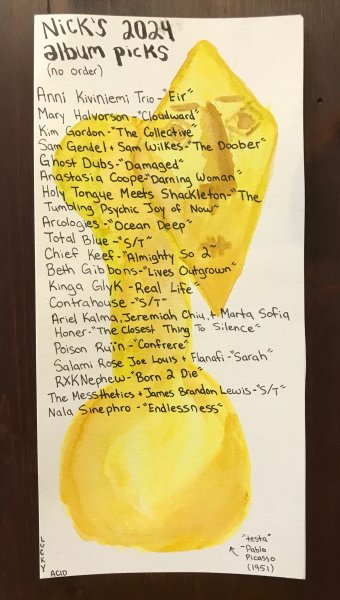 NICK'S 2024
album picks
(no order)
Anni Kiviniemi Trio-"Eir"
Mary Halvorson-"Cloudward"
Kim Gordon-"The Collective"
Sam Gendel + Sam Wilkes-"The Doober"
Ghost Dubs-"Damaged"
Anastasia Coope-"Darning Woman"
Holy Tongue Meets Shackleton-"The
Tumbling Psychic Joy of Now"
Arcologies-"Ocean Deep"
Total Blue-"S/T"
Chief Keef-"Almighty So 2"
Beth Gibbons-"Lives Outgrown"
Kinga Glyk-Real Life"
Contrahouse-"S/T"
Ariel Kalma, Jeremiah Chiu, + Marta Sofia
Honer-"The Closest Thing To Silence"
Poison Ruïn-"Confrere"
Salami Rose Joe Louis + Flanafi-"Sarah"
RXKNephew-"Born 2 Die"
The Messthetics + James Brandon Lewis-"S/T"
Nala Sinephro-"Endlessness"
"testa"
-Pablo
Picasso
(1951)
LUCKY
ACID